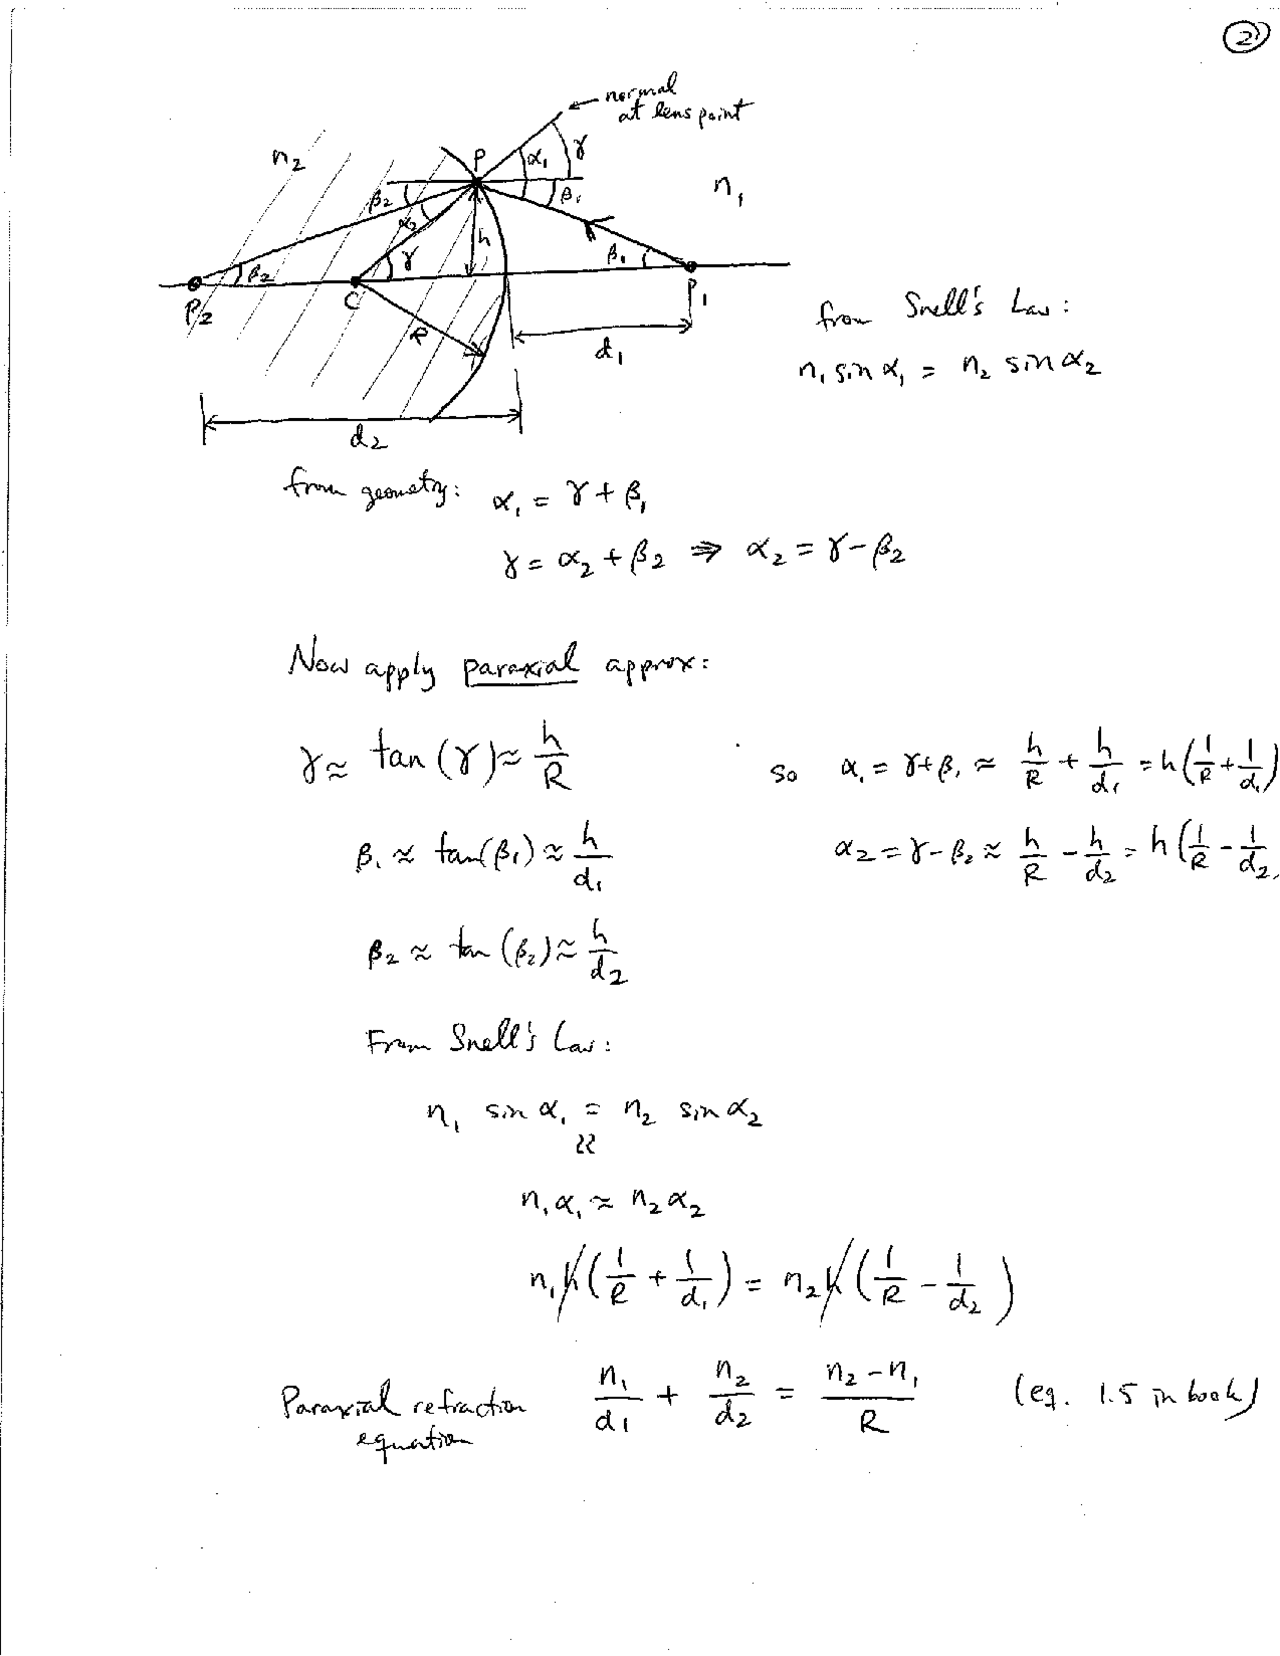 ②
normal
at lens point
n₂
P
α₁
γ
β₁
n₁
β₂
α₂
h
γ
β₁
β₂
P₂
C
R
P₁
d₁
d₂
from Snell's Law:
n₁ sin α₁ = n₂ sin α₂
from geometry: α₁ = γ + β₁
γ = α₂ + β₂ ⇒ α₂ = γ - β₂
Now apply paraxial approx:
γ ≈ tan(γ) ≈ h/R
so α₁ = γ + β₁ ≈ h/R + h/d₁ = h(1/R + 1/d₁)
β₁ ≈ tan(β₁) ≈ h/d₁
α₂ = γ - β₂ ≈ h/R - h/d₂ = h(1/R - 1/d₂
β₂ ≈ tan(β₂) ≈ h/d₂
From Snell's Law:
n₁ sin α₁ = n₂ sin α₂
≈
n₁ α₁ ≈ n₂ α₂
n₁ h(1/R + 1/d₁) = n₂ h(1/R - 1/d₂)
Paraxial refraction equation n₁/d₁ + n₂/d₂ = (n₂ - n₁)/R (eq. 1.5 in book)